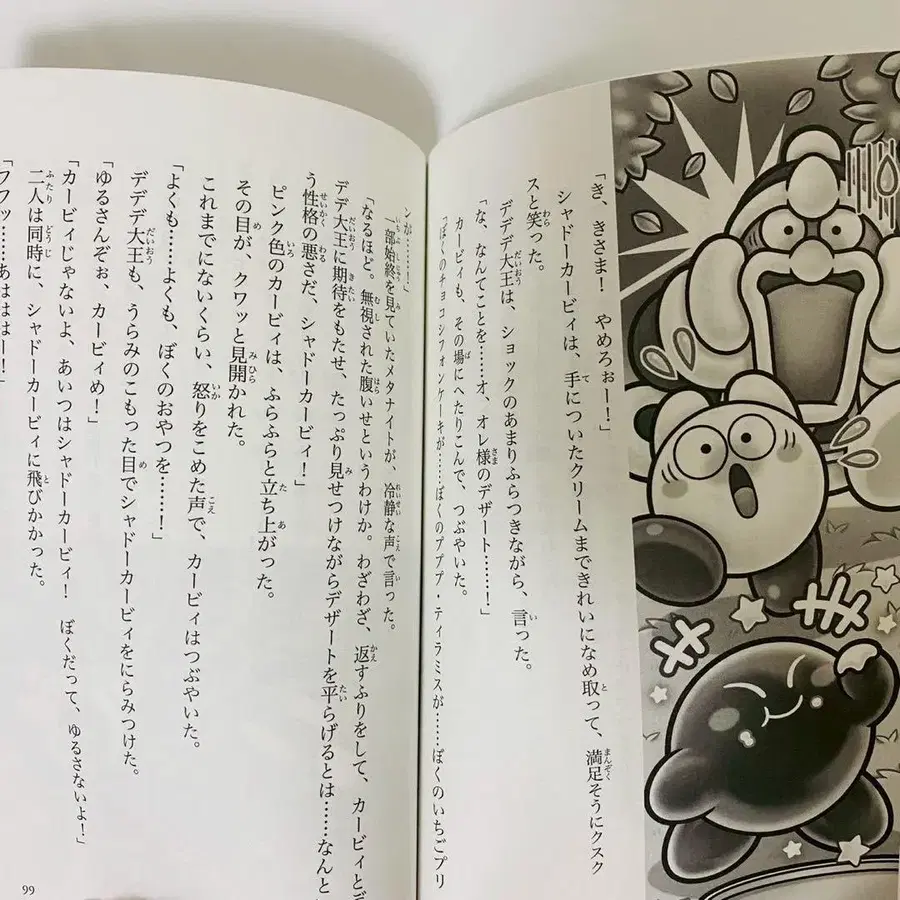 「き、きさま！　やめろぉー！」
シャドーカービィは、手についたクリームまできれいになめ取って、満足そうにクスク
スと笑った。
デデデ大王は、ショックのあまりふらつきながら、言った。
「な、なんてことを……オ、オレ様のデザート……！」
カービィも、その場にへたりこんで、つぶやいた。
「ぼくのチョコシフォンケーキが……ぼくのプププ・ティラミスが……ぼくのいちごプリ
ンが……！」
一部始終を見ていたメタナイトが、冷静な声で言った。
「なるほど。無視された腹いせというわけか。わざわざ、返すふりをして、カービィとデ
デデ大王に期待をもたせ、たっぷり見せつけながらデザートを平らげるとは……なんと
う性格の悪さだ、シャドーカービィ！」
ピンク色のカービィは、ふらふらと立ち上がった。
その目が、クワッと見開かれた。
これまでにないくらい、怒りをこめた声で、カービィはつぶやいた。
「よくも……よくも、ぼくのおやつを……！」
デデデ大王も、うらみのこもった目でシャドーカービィをにらみつけた。
「ゆるさんぞぉ、カービィめ！」
「カービィじゃないよ、あいつはシャドーカービィ！　ぼくだって、ゆるさないよ！」
二人は同時に、シャドーカービィに飛びかかった。
「フフッ……あははは！」
99